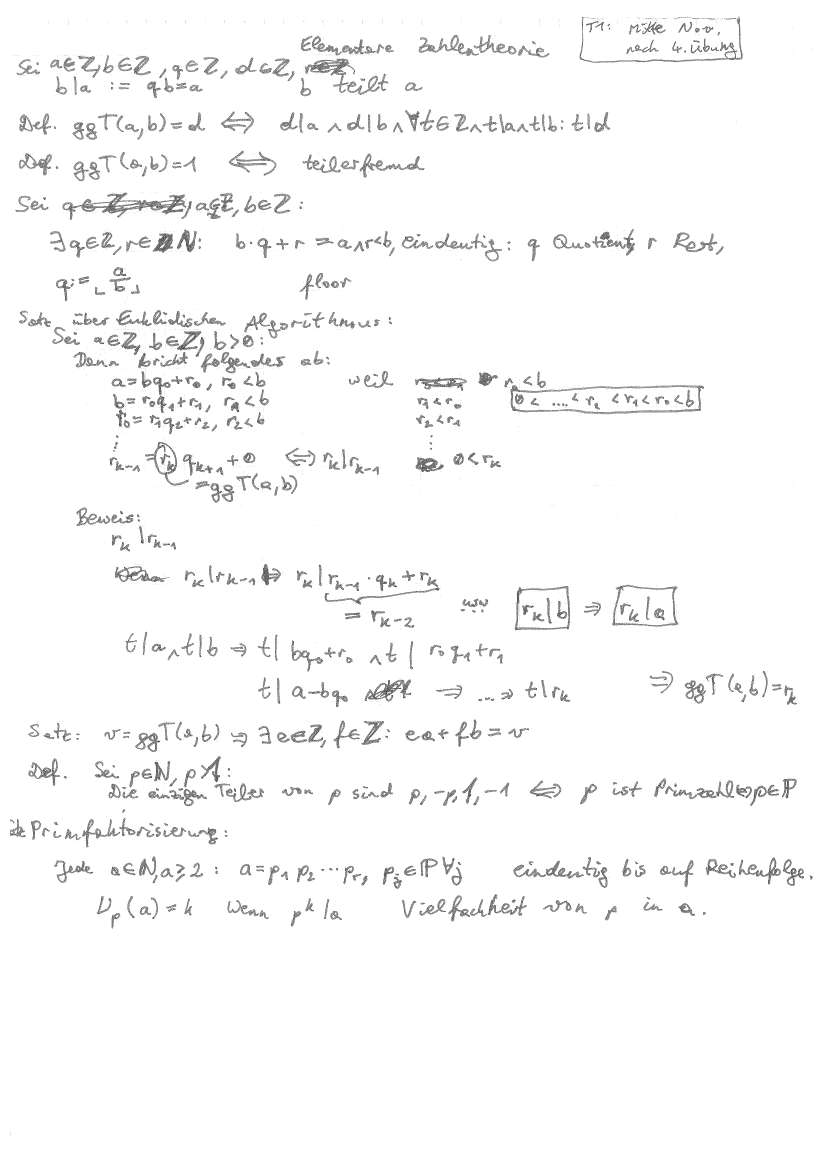 Elementare Zahlentheorie
T1: Mitte Nov., nach 4. Übung
Sei a∈ℤ, b∈ℤ, q∈ℤ, d∈ℤ,
b|a := qb=a b teilt a
Def. ggT(a,b)=d ⟺ d|a ∧ d|b ∧ ∀t∈ℤ∧t|a∧t|b: t|d
Def. ggT(a,b)=1 ⟺ teilerfremd
Sei a∈ℤ, b∈ℤ:
∃q∈ℤ, r∈ℕ: b·q+r=a∧r<b, eindeutig: q Quotient, r Rest,
q:=⌊a/b⌋ floor
Satz über Euklidischen Algorithmus:
Sei a∈ℤ, b∈ℤ, b>0:
Dann bricht folgendes ab:
a=bq₀+r₀, r₀<b weil r₀<b
b=r₀q₁+r₁, r₁<b r₁<r₀ 0< ....< r₂ <r₁<r₀<b
r₀=r₁q₂+r₂, r₂<b r₂<r₁
⋮ ⋮
rₖ₋₁=rₖ qₖ₊₁+0 ⟺ rₖ|rₖ₋₁ 0<rₖ
=ggT(a,b)
Beweis:
rₖ|rₖ₋₁
rₖ|rₖ₋₁ ⇒ rₖ|rₖ₋₁·qₖ+rₖ
= rₖ₋₂ usw rₖ|b ⇒ rₖ|a
t|a∧t|b ⇒ t| bq₀+r₀ ∧ t| r₀q₁+r₁
t| a-bq₀ ⇒ ...⇒ t|rₖ ⇒ ggT(a,b)=rₖ
Satz: v=ggT(a,b) ⇒ ∃e∈ℤ, f∈ℤ: ea+fb=v
Def. Sei p∈ℕ, p>1:
Die einzigen Teiler von p sind p,-p,1,-1 ⟺ p ist Primzahl⇔p∈ℙ
Primfaktorisierung:
Jede a∈ℕ, a≥2: a=p₁p₂⋯pᵣ, pⱼ∈ℙ∀j eindeutig bis auf Reihenfolge.
νₚ(a)=k wenn pᵏ|a Vielfachheit von p in a.